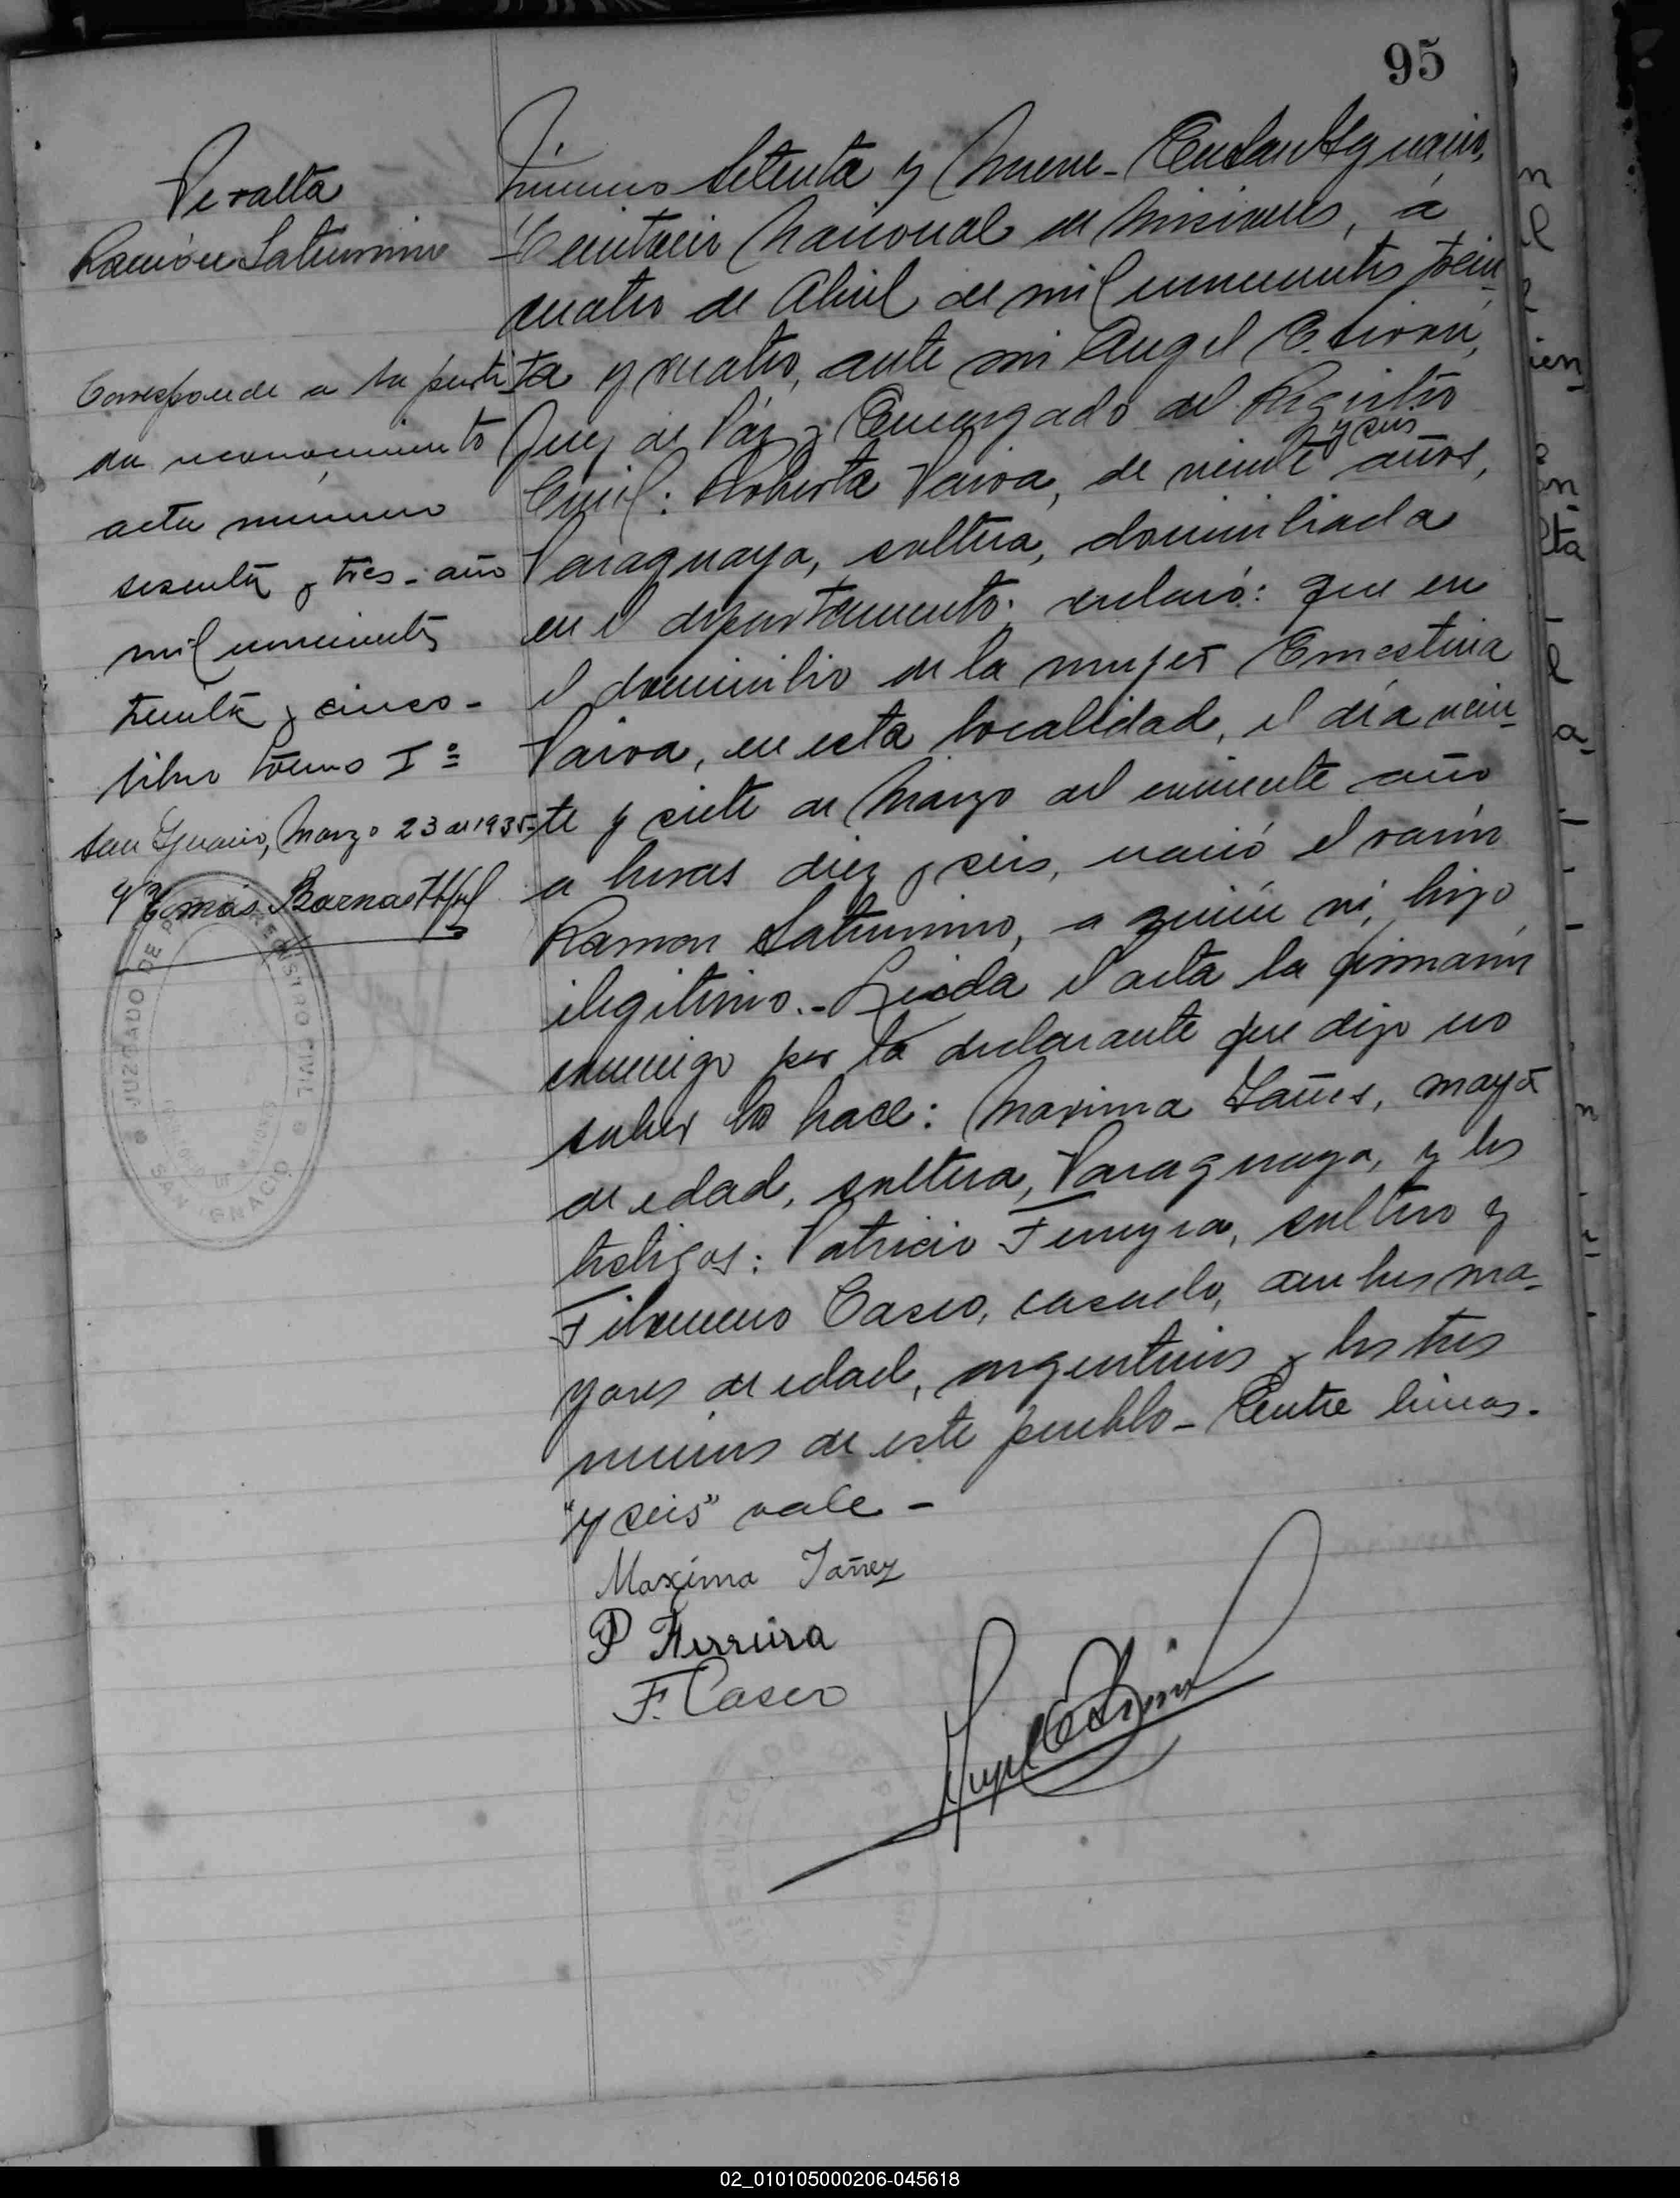 95
Peralta
Ramón Saturnino
Corresponde a la parti
da reconocimiento
acta número
sesenta y tres - año
mil novecientos
treinta y cinco -
libro tomo Iº
San Ignacio, Marzo 23 de 1935-
Tomás Barnas
JUZGADO DE PAZ Y REGISTRO CIVIL
SAN IGNACIO
Número Setenta y Nueve - En San Ignacio,
Territorio Nacional de Misiones, á
cuatro de Abril de mil novecientos trein-
ta y cuatro, ante mi Angel E.
Juez de Páz y Encargado del Registro
y seis
Civil: Roberta Vaiva, de veinte años,
Paraguaya, soltera, domiciliada
en el departamento; declaró: que en
el domicilio de la mujer Ernestina
Vaiva, en esta localidad, el día vein-
te y siete de Marzo del corriente año
a horas diez y seis, nació el varón
Ramon Saturnino, a quién ví, hijo
ilegitimo. - Leida el acta la firmarón
conmigo por la declarante que dijo no
saber lo hace: Maxima Yañes, mayor
de edad, soltera, Paraguaya, y los
testigos: Patricio Ferreyra, soltero y
Filomeno Casco, casado, ambos ma-
yores de edad, argentinos y los tres
vecinos de este pueblo - Entre lineas -
"y seis" vale -
Maxima Yañez
P Ferreira
F. Casco
Angel E
02_010105000206-045618